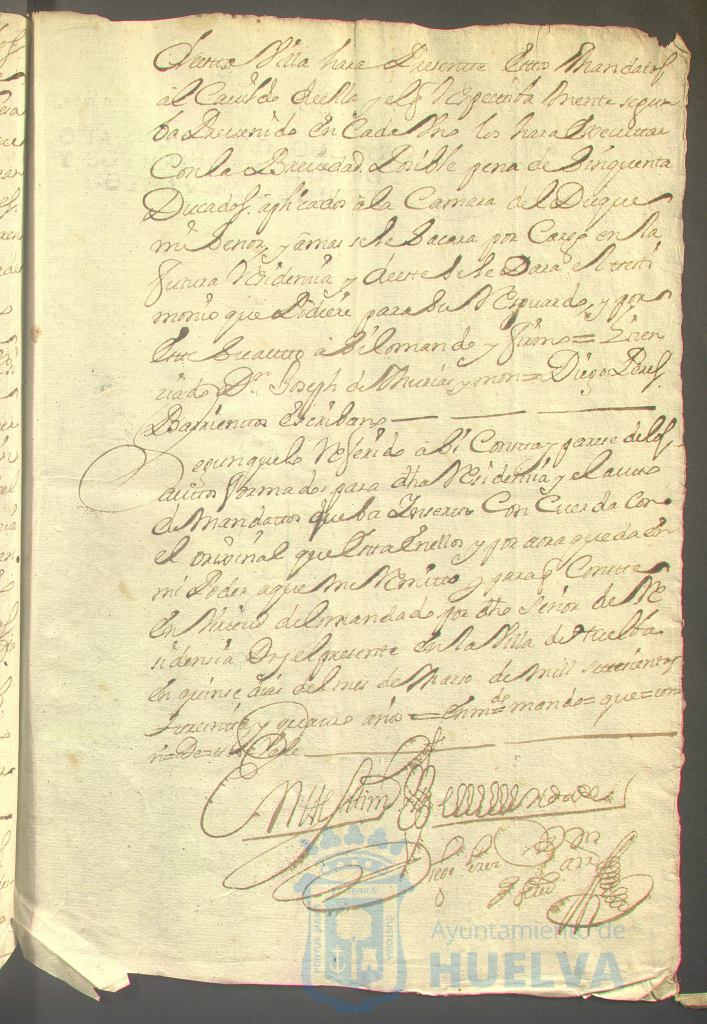 de esta Villa hara Presente estos Mandatos
al Cavildo de ella y el q Respectiva mente segun
ba Prevenido en Cada Uno los hara Executar
Con la Brevedad Posible pena de Sinquenta
Ducados aplicados a la Camara del Duque
mi Senor, y amas se le Sacara por Cargo en la
futura Residensia y de este se le Dara el testi
monio que Pidiere para Su Resguardo, y por
este Su autto asi lo mando y firmo = Lizen
ciado Dn Joseph de Murias y mon = Diego Peres
Barrientos Escribano
Segun que lo Referido asi Consta y parese de los
auttos formados para dha Residensia y el autto
de Mandattos que ba Inserto Con Cuerda Con
el original que Esta En ellos y por aora queda en
mi Poder a que me Remitto y para q Conste
En Virtud de lo mandado por dho Señor de Re
sidensia Doy el presente en la Villa de Huelba
En quinse dias del mes de Marso de mill settesientos
y quatro años = Enm do mando = que = con
n = De =
Diego Perez
Ayuntamiento de
HUELVA